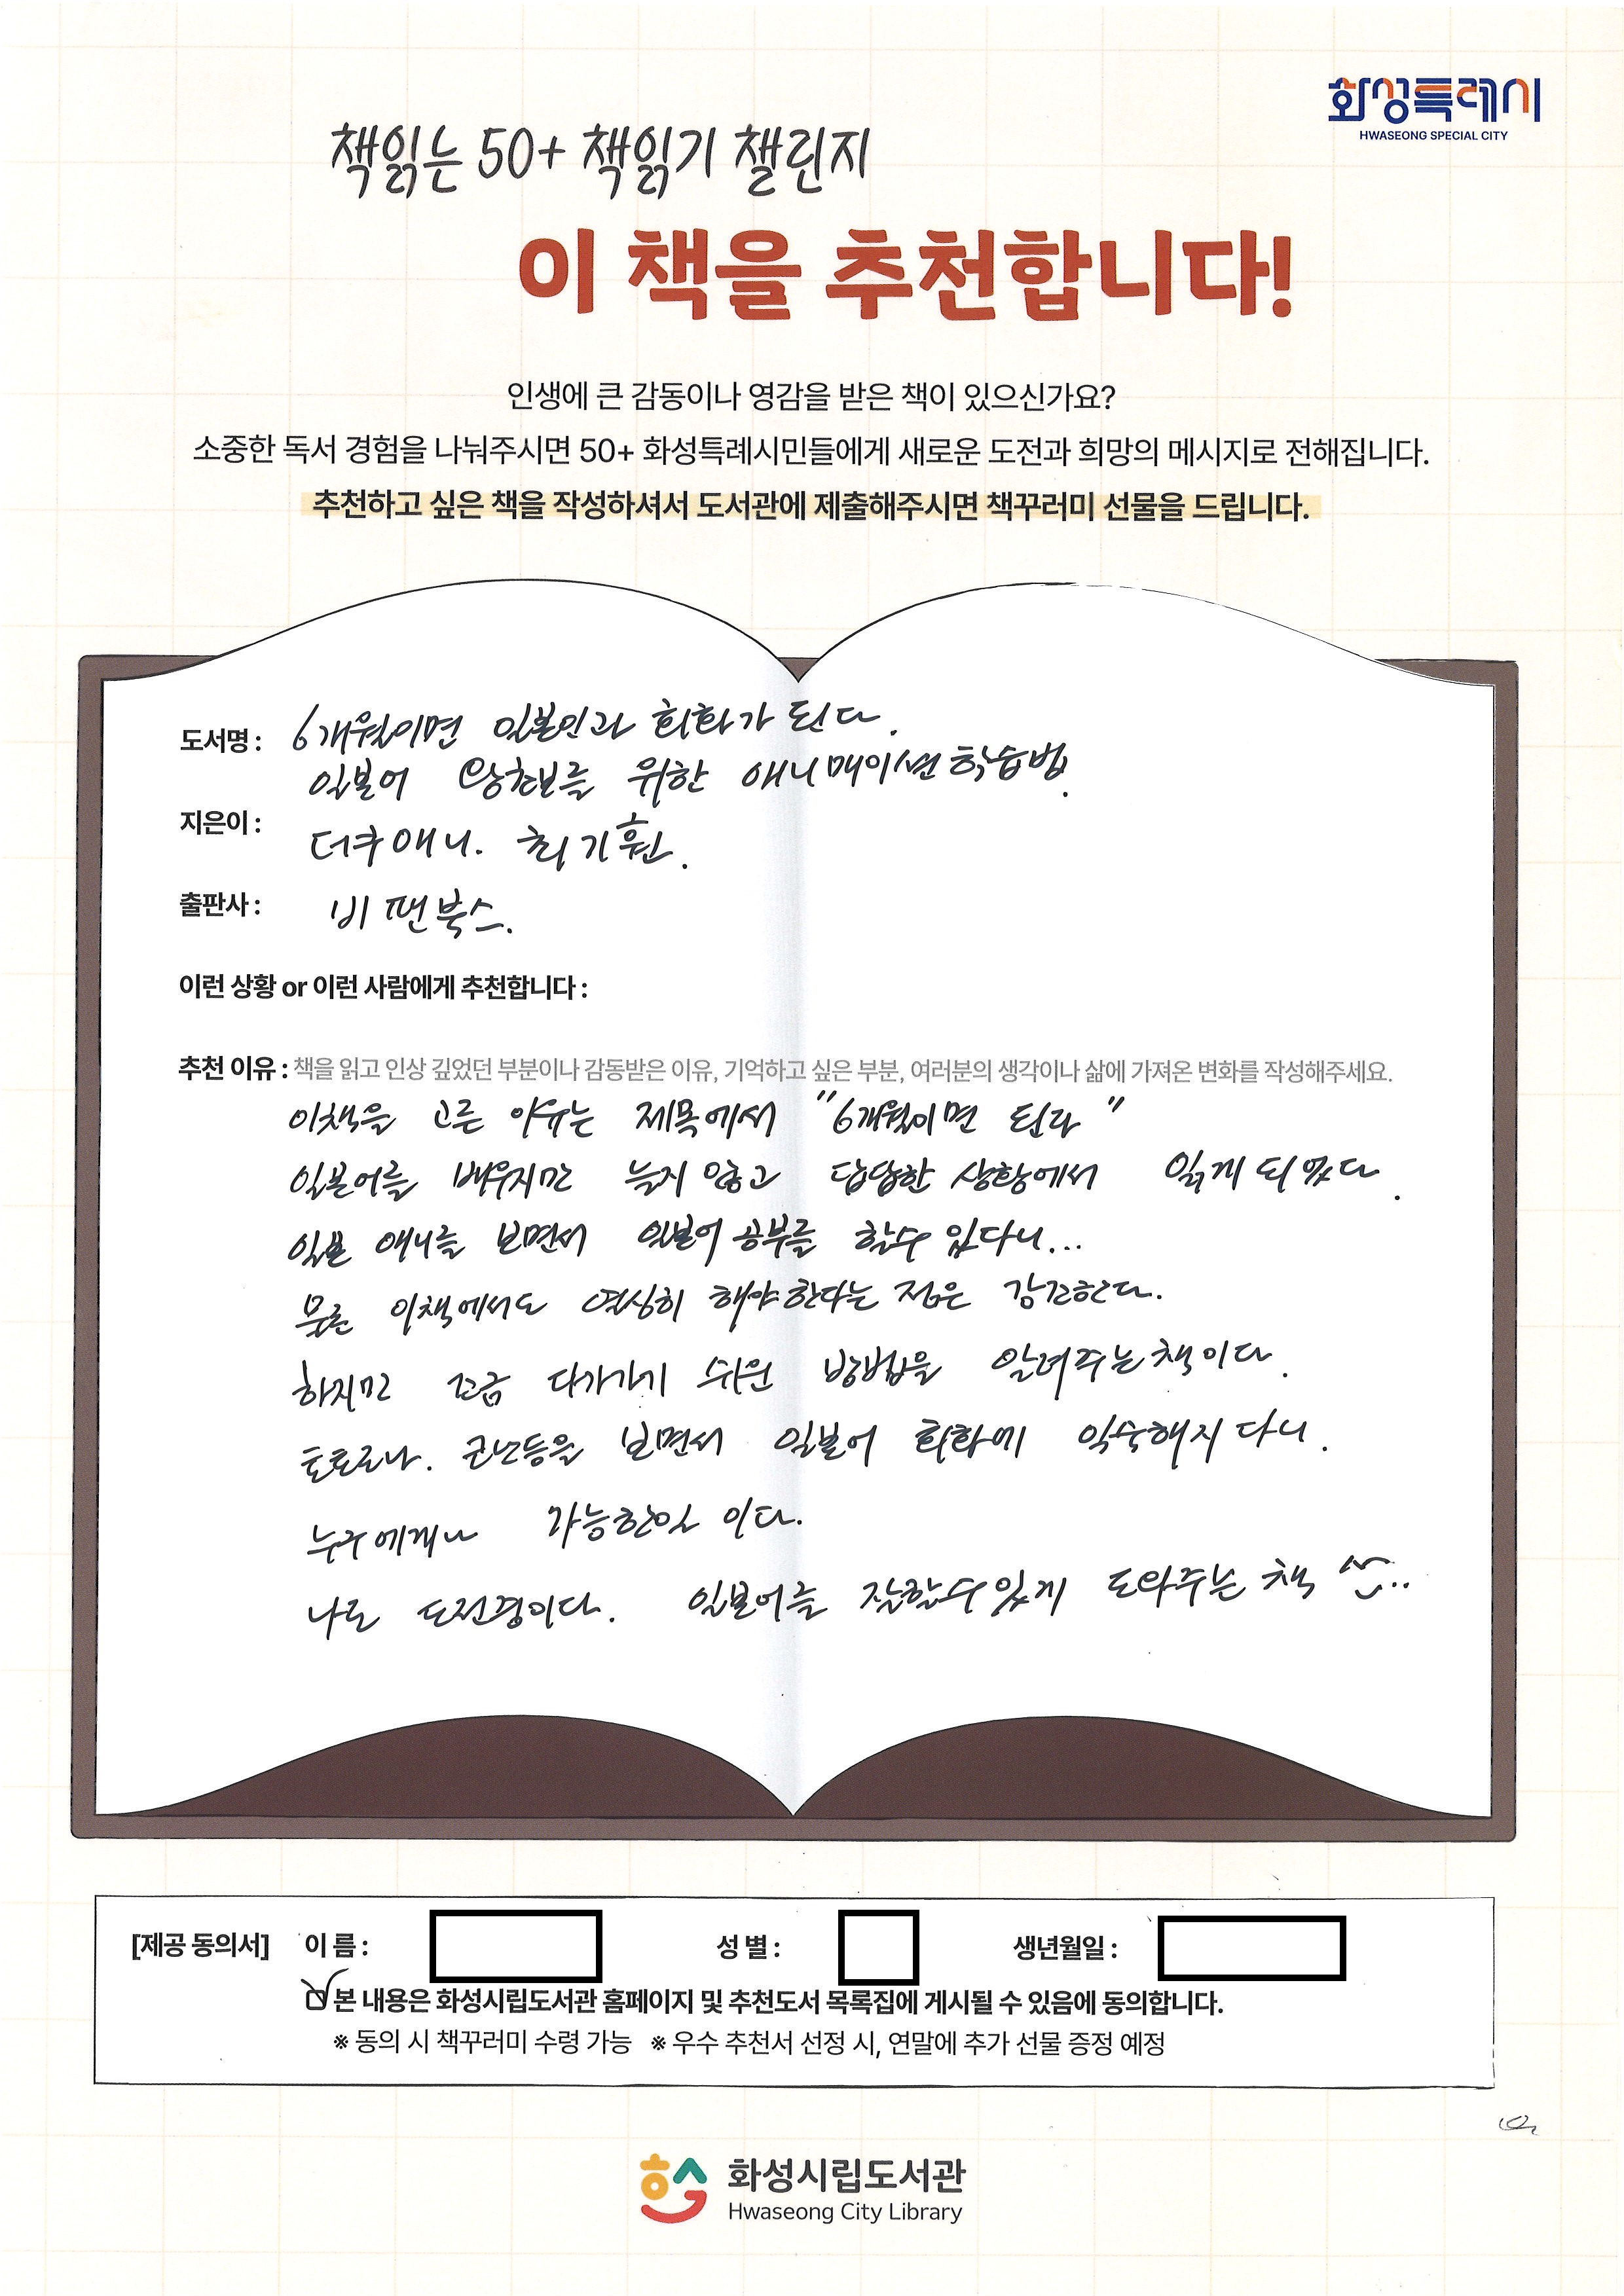 화성특례시
HWASEONG SPECIAL CITY
책읽는 50+ 책읽기 챌린지
이 책을 추천합니다!
인생에 큰 감동이나 영감을 받은 책이 있으신가요?
소중한 독서 경험을 나눠주시면 50+ 화성특례시민들에게 새로운 도전과 희망의 메시지로 전해집니다.
추천하고 싶은 책을 작성하셔서 도서관에 제출해주시면 책꾸러미 선물을 드립니다.
도서명 : 6개월이면 일본인과 회화가 된다.
일본어 왕초보를 위한 애니메이션 학습법.
지은이 : 더쿠애니. 최기훈.
출판사 : 비팬북스.
이런 상황 or 이런 사람에게 추천합니다 :
추천 이유 : 책을 읽고 인상 깊었던 부분이나 감동받은 이유, 기억하고 싶은 부분, 여러분의 생각이나 삶에 가져온 변화를 작성해주세요.
이책을 고른 이유는 제목에서 "6개월이면 된다"
일본어를 배우지만 늘지 않고 답답한 상황에서 읽게 되었다.
일본 애니를 보면서 일본어 공부를 할수 있다니...
물론 이책에서도 열심히 해야 한다는 점은 강조한다.
하지만 조금 다가가기 쉬운 방법을 알려주는 책이다.
토토로나. 코난등을 보면서 일본어 회화에 익숙해지다니.
누구에게나 가능한일 이다.
나도 도전중이다. 일본어를 잘할수있게 도와주는 책 ^^..
[제공 동의서] 이 름 : 성 별 : 생년월일 :
본 내용은 화성시립도서관 홈페이지 및 추천도서 목록집에 게시될 수 있음에 동의합니다.
※ 동의 시 책꾸러미 수령 가능 ※ 우수 추천서 선정 시, 연말에 추가 선물 증정 예정
화성시립도서관
Hwaseong City Library